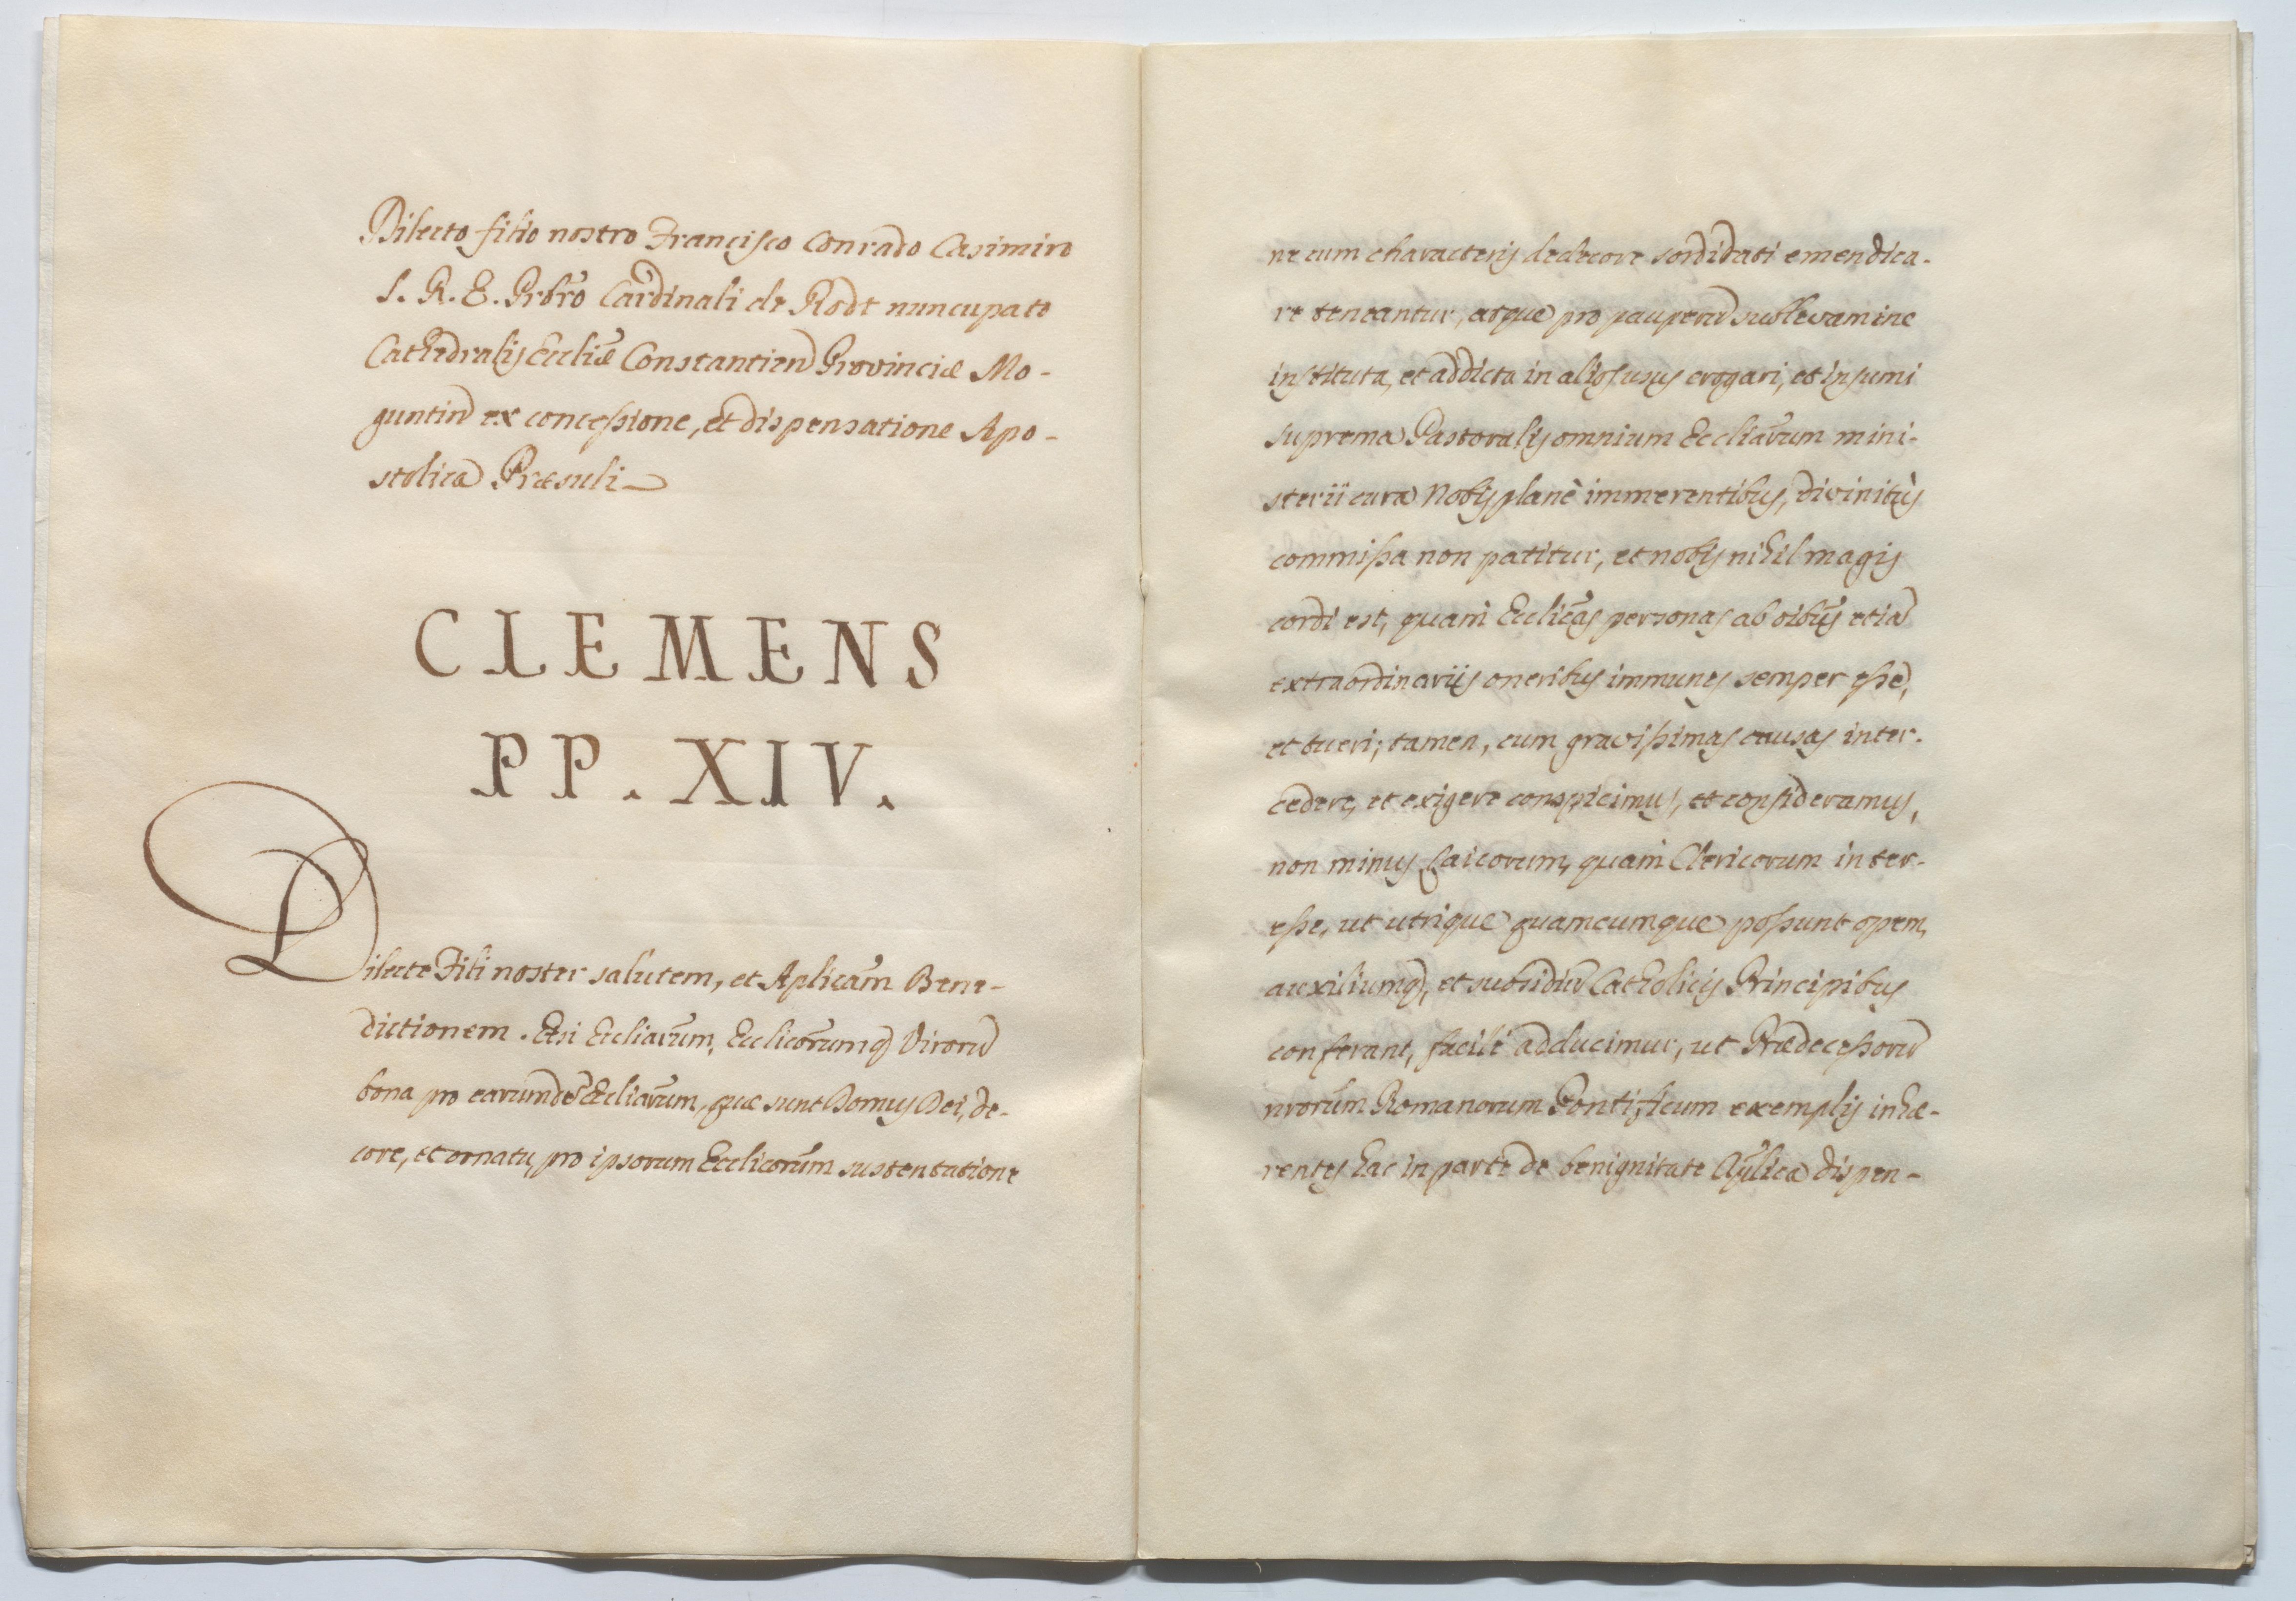 Dilecto filio nostro Francisco Conrado Casimiro
S. R. E. Prbro Cardinali de Rodt nuncupato
Cathedralis Eccliæ Constantien Provinciæ Mo-
guntin ex concessione, et dispensatione Apo-
stolica Præsuli
CLEMENS
PP. XIV.
Dilecte Fili noster salutem, et Aplicam Bene-
dictionem. Etsi Eccliarum, Ecclicorumq Virorū
bona pro earumdē Eccliarum, quæ sunt Domus Dei, de-
core, et ornatu, pro ipsorum Ecclicorum sustentatione
ne cum characteris dedecore sordidati emendica-
re teneantur, atque pro pauperū sublevamine
instituta, et addicta in alios usus erogari, et insumi
suprema Pastoralis omnium Eccliarum mini-
sterii cura Nobis planè immerentibus, divinitùs
commissa non patitur, et nobis nihil magis
cordi est, quam Ecclicas personas ab oibus etiā
extraordinariis oneribus immunes semper esse,
et tueri; tamen, cum gravissimas causas inter-
cedere, et exigere conspicimus, et consideramus,
non minus Laicorum, quam Clericorum inter-
esse, ut utrique quamcumque possunt opem,
auxiliumq, et subsidiū Catholicis Principibus
conferant, facilè adducimur, ut Prædecessorū
nrorum Romanorum Pontificum exemplis inhæ-
rentes hac in parte de benignitate Aplica dispen-